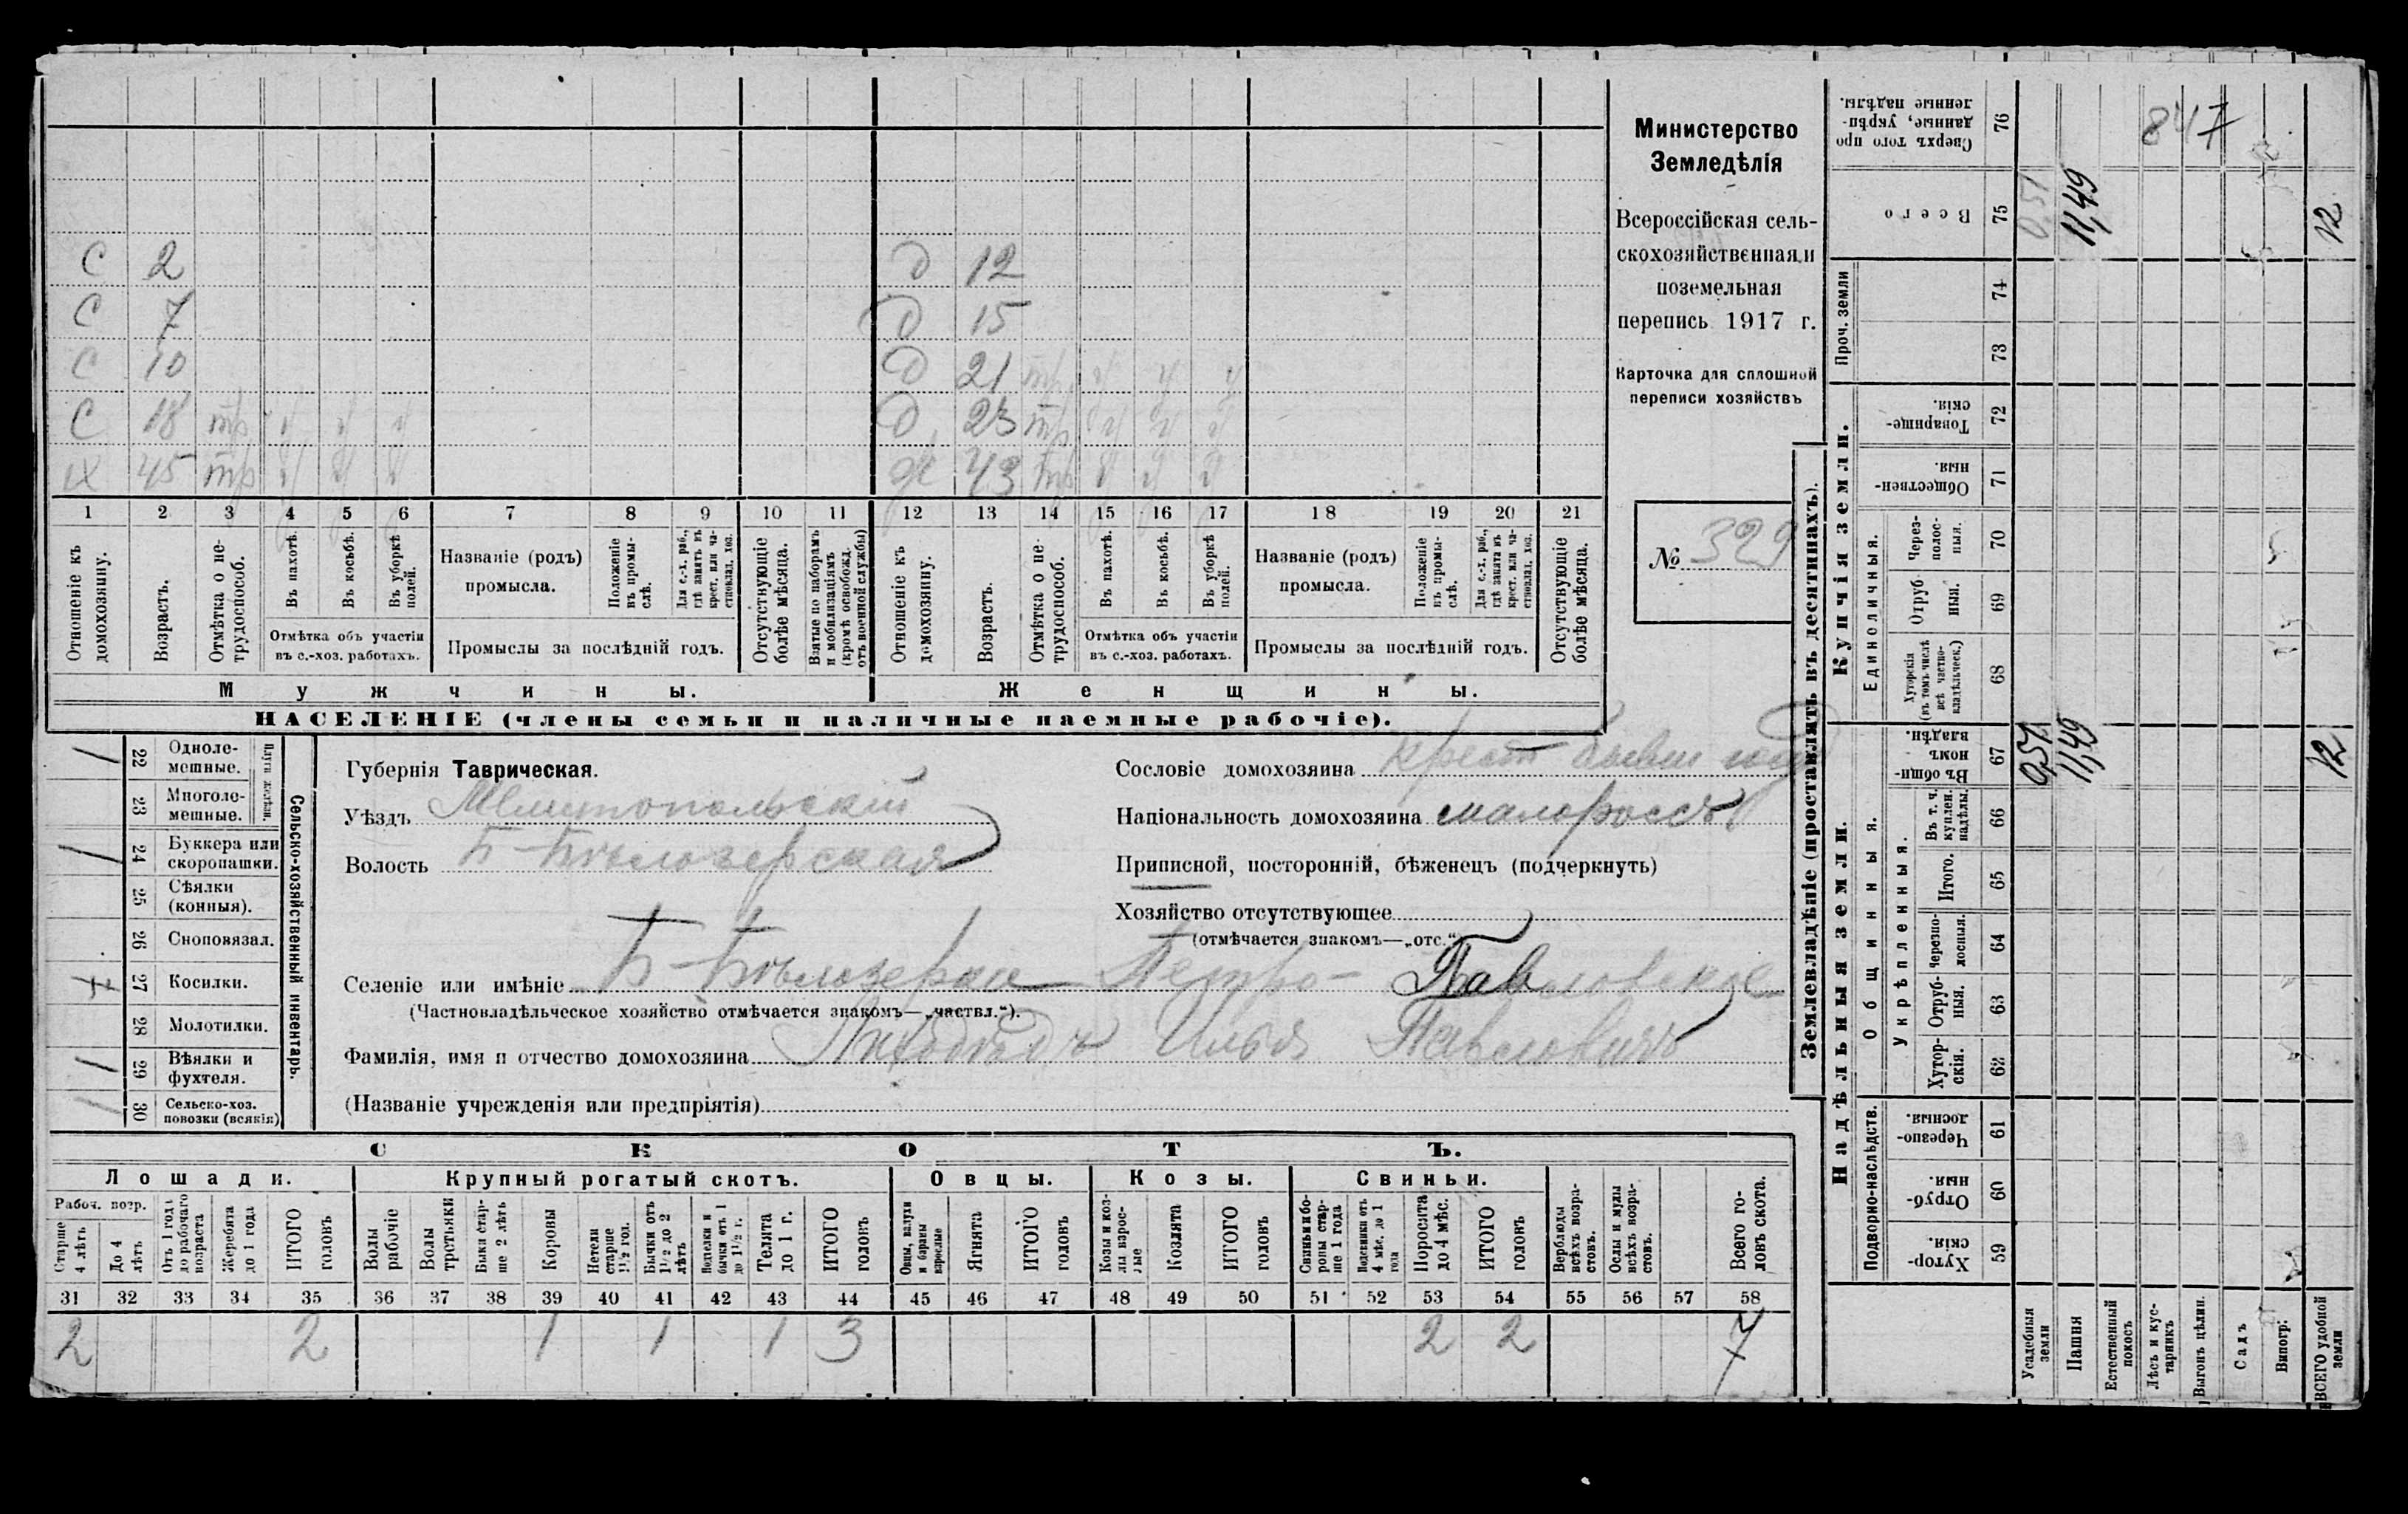 С 2 Д 12
С 7 Д 15
С 10 Д 21 тр
С 18 тр Д 23 тр
х 45 тр ж 43 тр
1 2 3 4 5 6 7 8 9 10 11 12 13 14 15 16 17 18 19 20 21
Отношеніе къ домохозяину.
Возрастъ.
Отмѣтка о не-трудоспособ.
Въ пахотѣ.
Въ косьбѣ.
Въ уборкѣ полей.
Отмѣтка объ участіи
въ с.-хоз. работахъ.
Названіе (родъ)
промысла.
Положеніе въ промы-слѣ.
Для с.-х. раб., гдѣ занятъ въ крест. или ча-стновлад. хоз.
Промыслы за послѣдній годъ.
Отсутствующіе болѣе мѣсяца.
Взятые по наборамъ и мобилизаціямъ (кромѣ освобожд. отъ военной службы)
Отношеніе къ домохозяину.
Возрастъ.
Отмѣтка о не-трудоспособ.
Въ пахотѣ.
Въ косьбѣ.
Въ уборкѣ полей.
Отмѣтка объ участіи
въ с.-хоз. работахъ.
Названіе (родъ)
промысла.
Положеніе въ промы-слѣ.
Для с.-х. раб., гдѣ занята въ крест. или ча-стновлад. хоз.
Промыслы за послѣдній годъ.
Отсутствующіе болѣе мѣсяца.
Мужчины.
Женщины.
НАСЕЛЕНІЕ (члены семьи и наличные наемные рабочіе).
Министерство
Земледѣлія
Всероссійская сель-
скохозяйственная и
поземельная
перепись 1917 г.
Карточка для сплошной
переписи хозяйствъ
№ 329
Сельско-хозяйственный инвентарь.
Плуги желѣзн.
22 Одноле-мешные.
23 Многоле-мешные.
24 Буккера или скоропашки.
25 Сѣялки (конныя).
26 Сноповязал.
27 Косилки.
28 Молотилки.
29 Вѣялки и фухтеля.
30 Сельско-хоз. повозки (всякія)
Губернія Таврическая.
Уѣздъ Мелитопольскій
Волость Б-Бѣлозерская
Сословіе домохозяина крест бывш
Національность домохозяина малороссъ
Приписной, посторонній, бѣженецъ (подчеркнуть)
Хозяйство отсутствующее
(отмѣчается знакомъ—„отс.“)
Селеніе или имѣніе Б-Бѣлозерка Петро-Павловское
(Частновладѣльческое хозяйство отмѣчается знакомъ—„частвл.“).
Фамилія, имя и отчество домохозяина Илья Павловичъ
(Названіе учрежденія или предпріятія)
СКОТЪ.
Лошади.
Крупный рогатый скотъ.
Овцы.
Козы.
Свиньи.
Рабоч. возр.
Старше 4 лѣтъ
До 4 лѣтъ
Отъ 1 года до рабочаго возраста
Жеребята до 1 года
ИТОГО головъ
Волы рабочіе
Волы третьяки
Быки стар-ше 2 лѣтъ
Коровы
Нетели старше 1½ год.
Бычки отъ 1½ до 2 лѣтъ
Подтелки и бычки отъ 1 до 1½ г.
Телята до 1 г.
ИТОГО головъ
Овцы, валухи и бараны взрослые
Ягнята
ИТОГО головъ
Козы и коз-лы взрос-лые
Козлята
ИТОГО головъ
Свиньи и бо-ровы стар-ше 1 года
Подсвинки отъ 4 мѣс. до 1 года
Поросята до 4 мѣс.
ИТОГО головъ
Верблюды всѣхъ возра-стовъ.
Ослы и мулы всѣхъ возра-стовъ.
Всего го-ловъ скота.
31 32 33 34 35 36 37 38 39 40 41 42 43 44 45 46 47 48 49 50 51 52 53 54 55 56 57 58
2 2 1 1 1 3 2 2 7
Землевладѣніе (проставлять въ десятинахъ).
Надѣльныя земли.
Купчія земли.
Проч. земли
Подворно-наслѣдств.
Общинныя.
Укрѣпленныя.
Единоличныя.
Хутор-скія. 59
Отруб-ныя. 60
Черезпо-лосныя. 61
Хутор-скія. 62
Отруб-ныя. 63
Черезпо-лосныя. 64
Итого. 65
Въ т. ч. куплен. надѣлы. 66
Въ общи-номъ владѣн. 67
Хуторскія (въ томъ числѣ всѣ частно-владѣльческ.) 68
Отруб-ныя. 69
Через-полос-ныя. 70
Обществен-ныя. 71
Товарище-скія. 72
73
74
Всего 75
Сверхъ того про-данные, укрѣп-ленные надѣлы. 76
Усадебныя земли 0,51 0,51
Пашня 11,49 11,49
Естественный покосъ
Лѣсъ и кус-тарникъ
Выгонъ цѣлин.
Садъ
Виногр.
ВСЕГО удобной земли 12 12
847